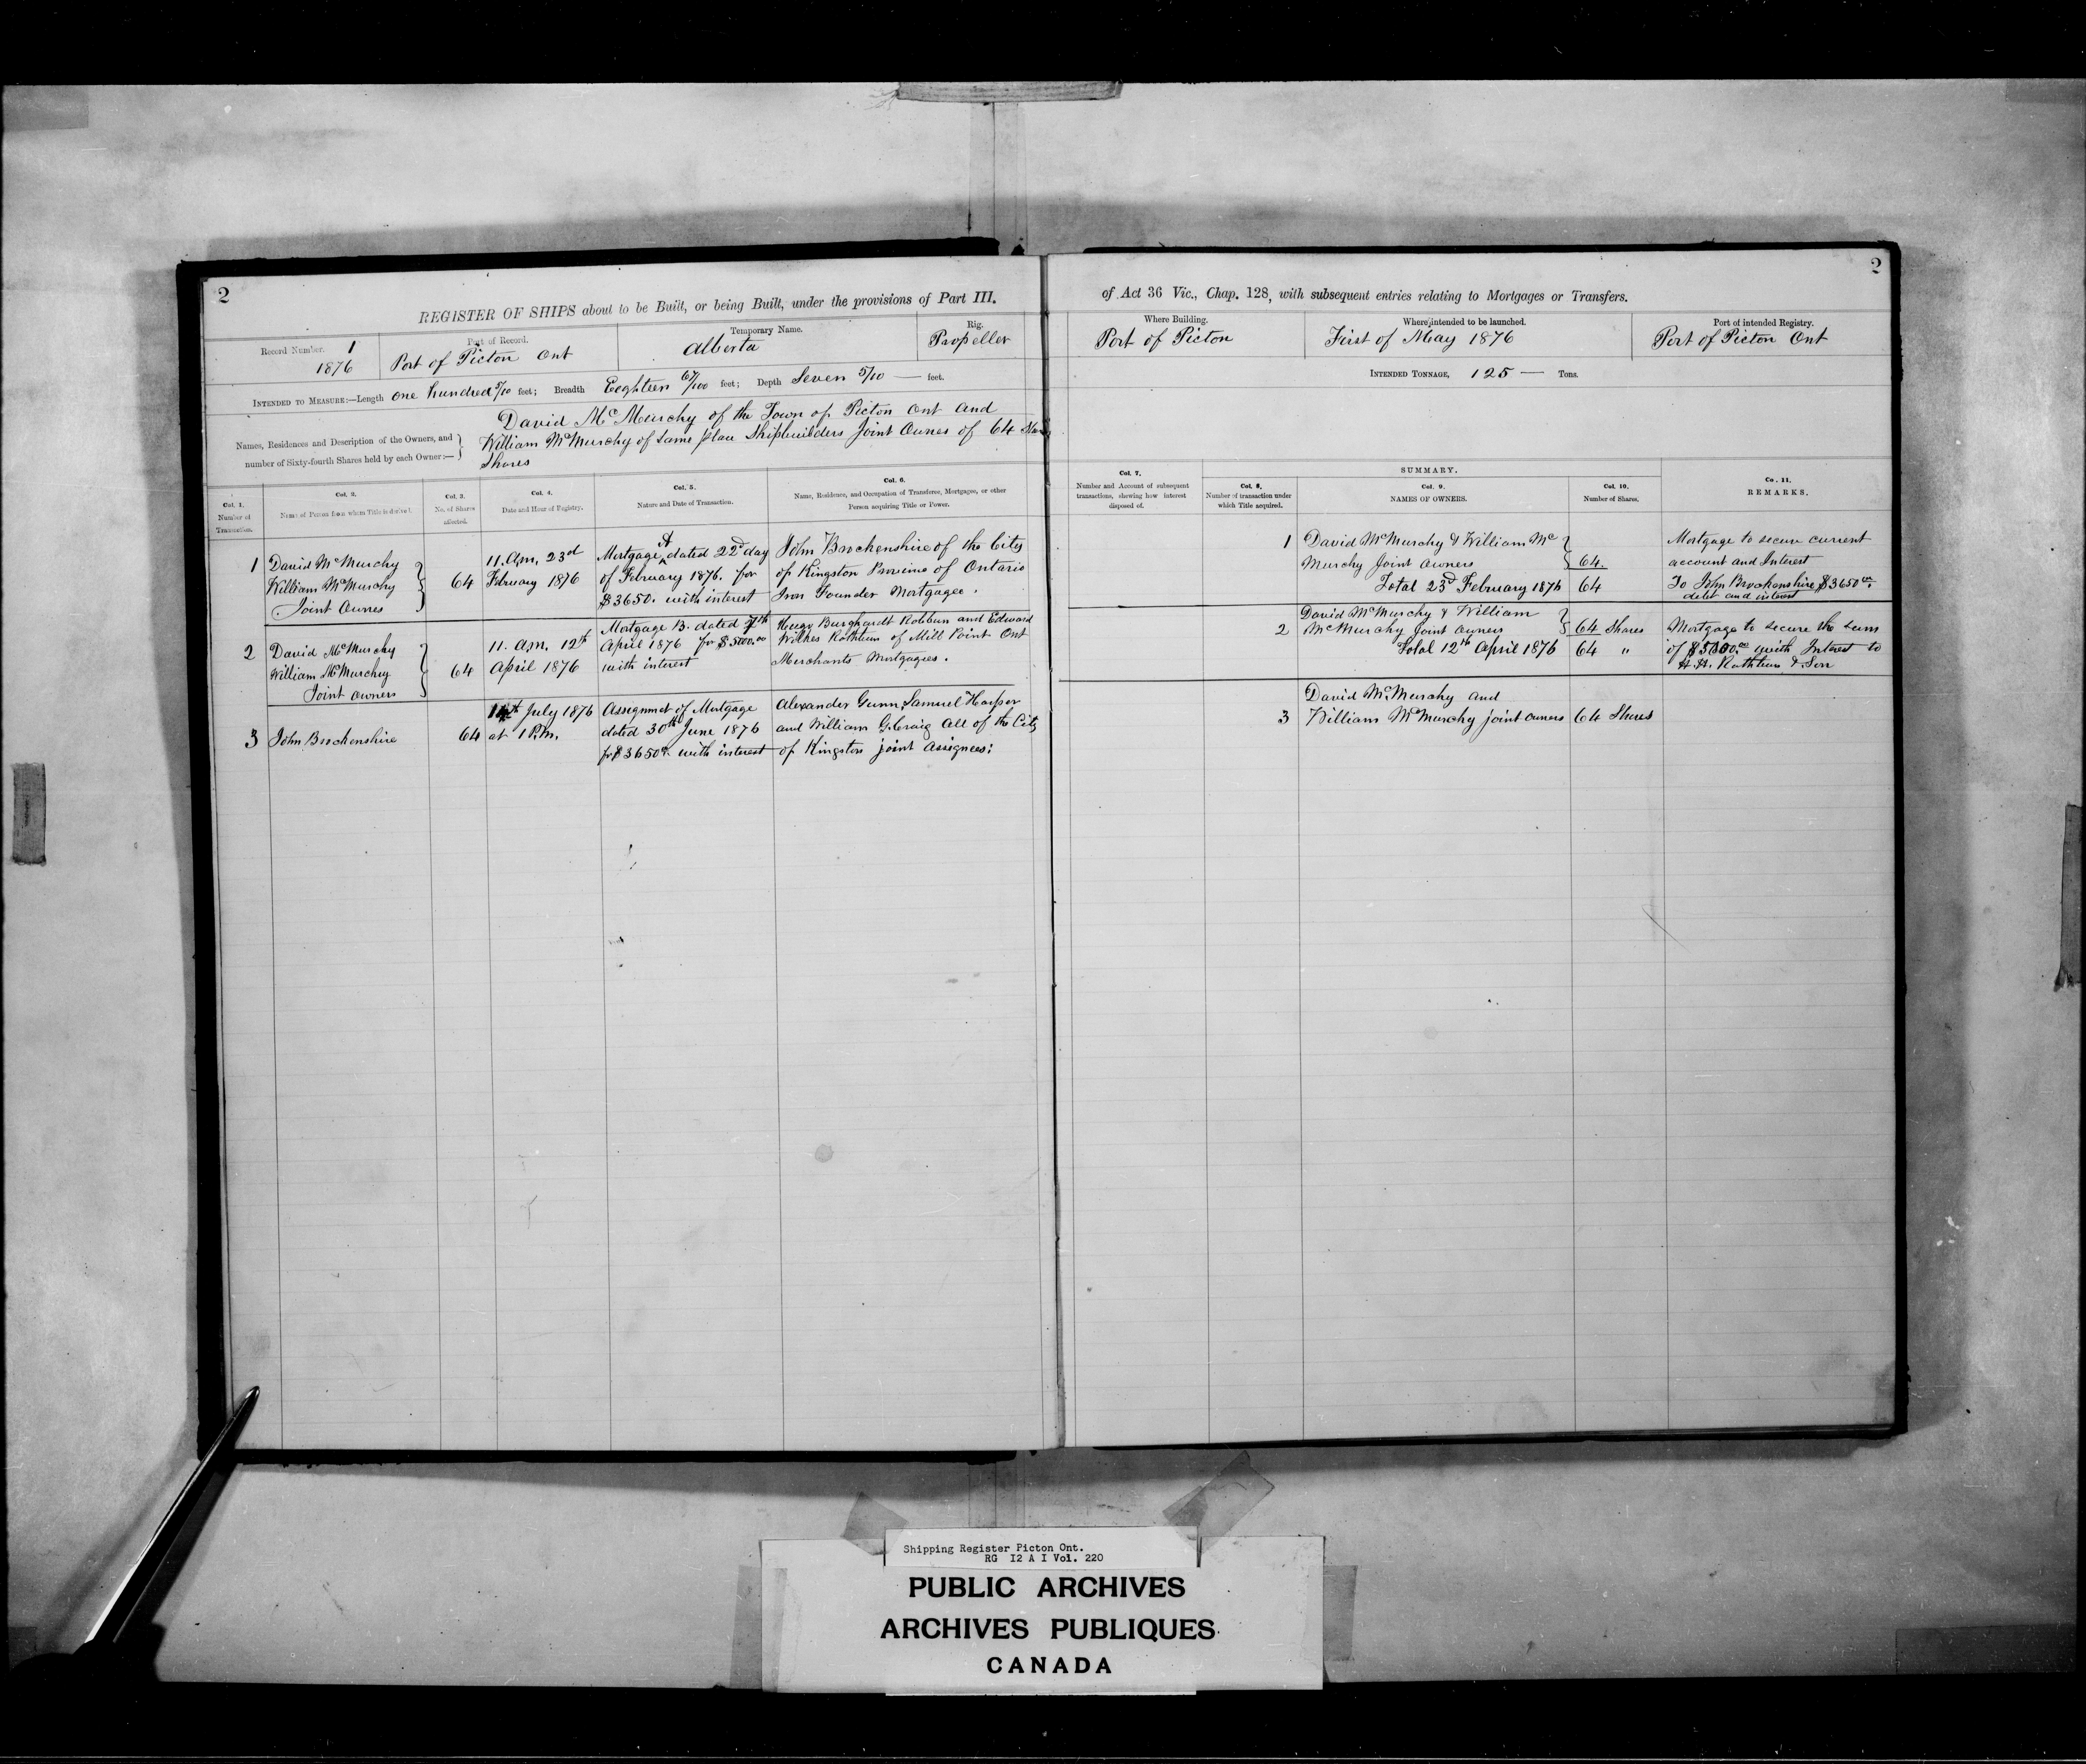 2
REGISTER OF SHIPS about to be Built, or being Built, under the provisions of Part III.
Record Number. 1
1876
Port of Record.
Port of Picton Ont
Temporary Name.
Alberta
Rig.
Propeller
INTENDED TO MEASURE:—Length one hundred 5/10 feet; Breadth Eeghteen 67/100 feet; Depth Seven 5/10 — feet.
Names, Residences and Description of the Owners, and
number of Sixty-fourth Shares held by each Owner:—
David McMurchy of the Town of Picton Ont and
William McMurchy of Same place Shipbuilders Joint Ownes of 64
Shares
Col. 1.
Number of
Transaction.
Col. 2.
Name of Person from whom Title is derived.
Col. 3.
No. of Shares
affected.
Col. 4.
Date and Hour of Registry.
Col. 5.
Nature and Date of Transaction.
Col. 6.
Name, Residence, and Occupation of Transferee, Mortgagee, or other
Person acquiring Title or Power.
1
David McMurchy
William McMurchy
Joint Ownes
64
11. Am, 23d
February 1876
Mortgage A dated 22d day
of February 1876. for
$3650. with interest
John Brockenshire of the City
of Kingston Provine of Ontario
Iron Founder Mortgagee.
2
David McMurchy
William McMurchy
Joint Owners
64
11. Am, 12th
April 1876
Mortgage B. dated 7th
April 1876 for $5000.00
with interest
Hugo Burghardt Rathbun and Edward
Wilkes Rathbun of Mill Point Ont
Merchants Mortgagees.
3
John Brockenshire
64
14th July 1876
at 1 P.M.
Assignmet of Mortgage
dated 30th June 1876
for $3650 with interest
Alexander Gunn, Samuel Harper
and William G. Craig all of the City
of Kingston joint Assignees:
of Act 36 Vic., Chap. 128, with subsequent entries relating to Mortgages or Transfers.
2
Where Building.
Port of Picton
Where intended to be launched.
First of May 1876
Port of intended Registry.
Port of Picton Ont
INTENDED TONNAGE, 125 — Tons.
Col. 7.
Number and Account of subsequent
transactions, shewing how interest
disposed of.
SUMMARY.
Col. 8.
Number of transaction under
which Title acquired.
Col. 9.
NAMES OF OWNERS.
Col. 10.
Number of Shares.
Co. 11.
REMARKS.
1
David McMurchy & William Mc
Murchy Joint Owners
Total 23d February 1876
64.
64
Mortgage to secure current
account and Interest
To John Brockenshire $3650
debt and interest
2
David McMurchy & William
McMurchy Joint Owners
Total 12th April 1876
64 Shares
64 "
Mortgage to secure the sum
of $5000.00 with Interest to
H. B. Rathbun & Son
3
David McMurchy and
William McMurchy joint owners
64 Shares
Shipping Register Picton Ont.
RG I2 A I Vol. 220
PUBLIC ARCHIVES
ARCHIVES PUBLIQUES
CANADA